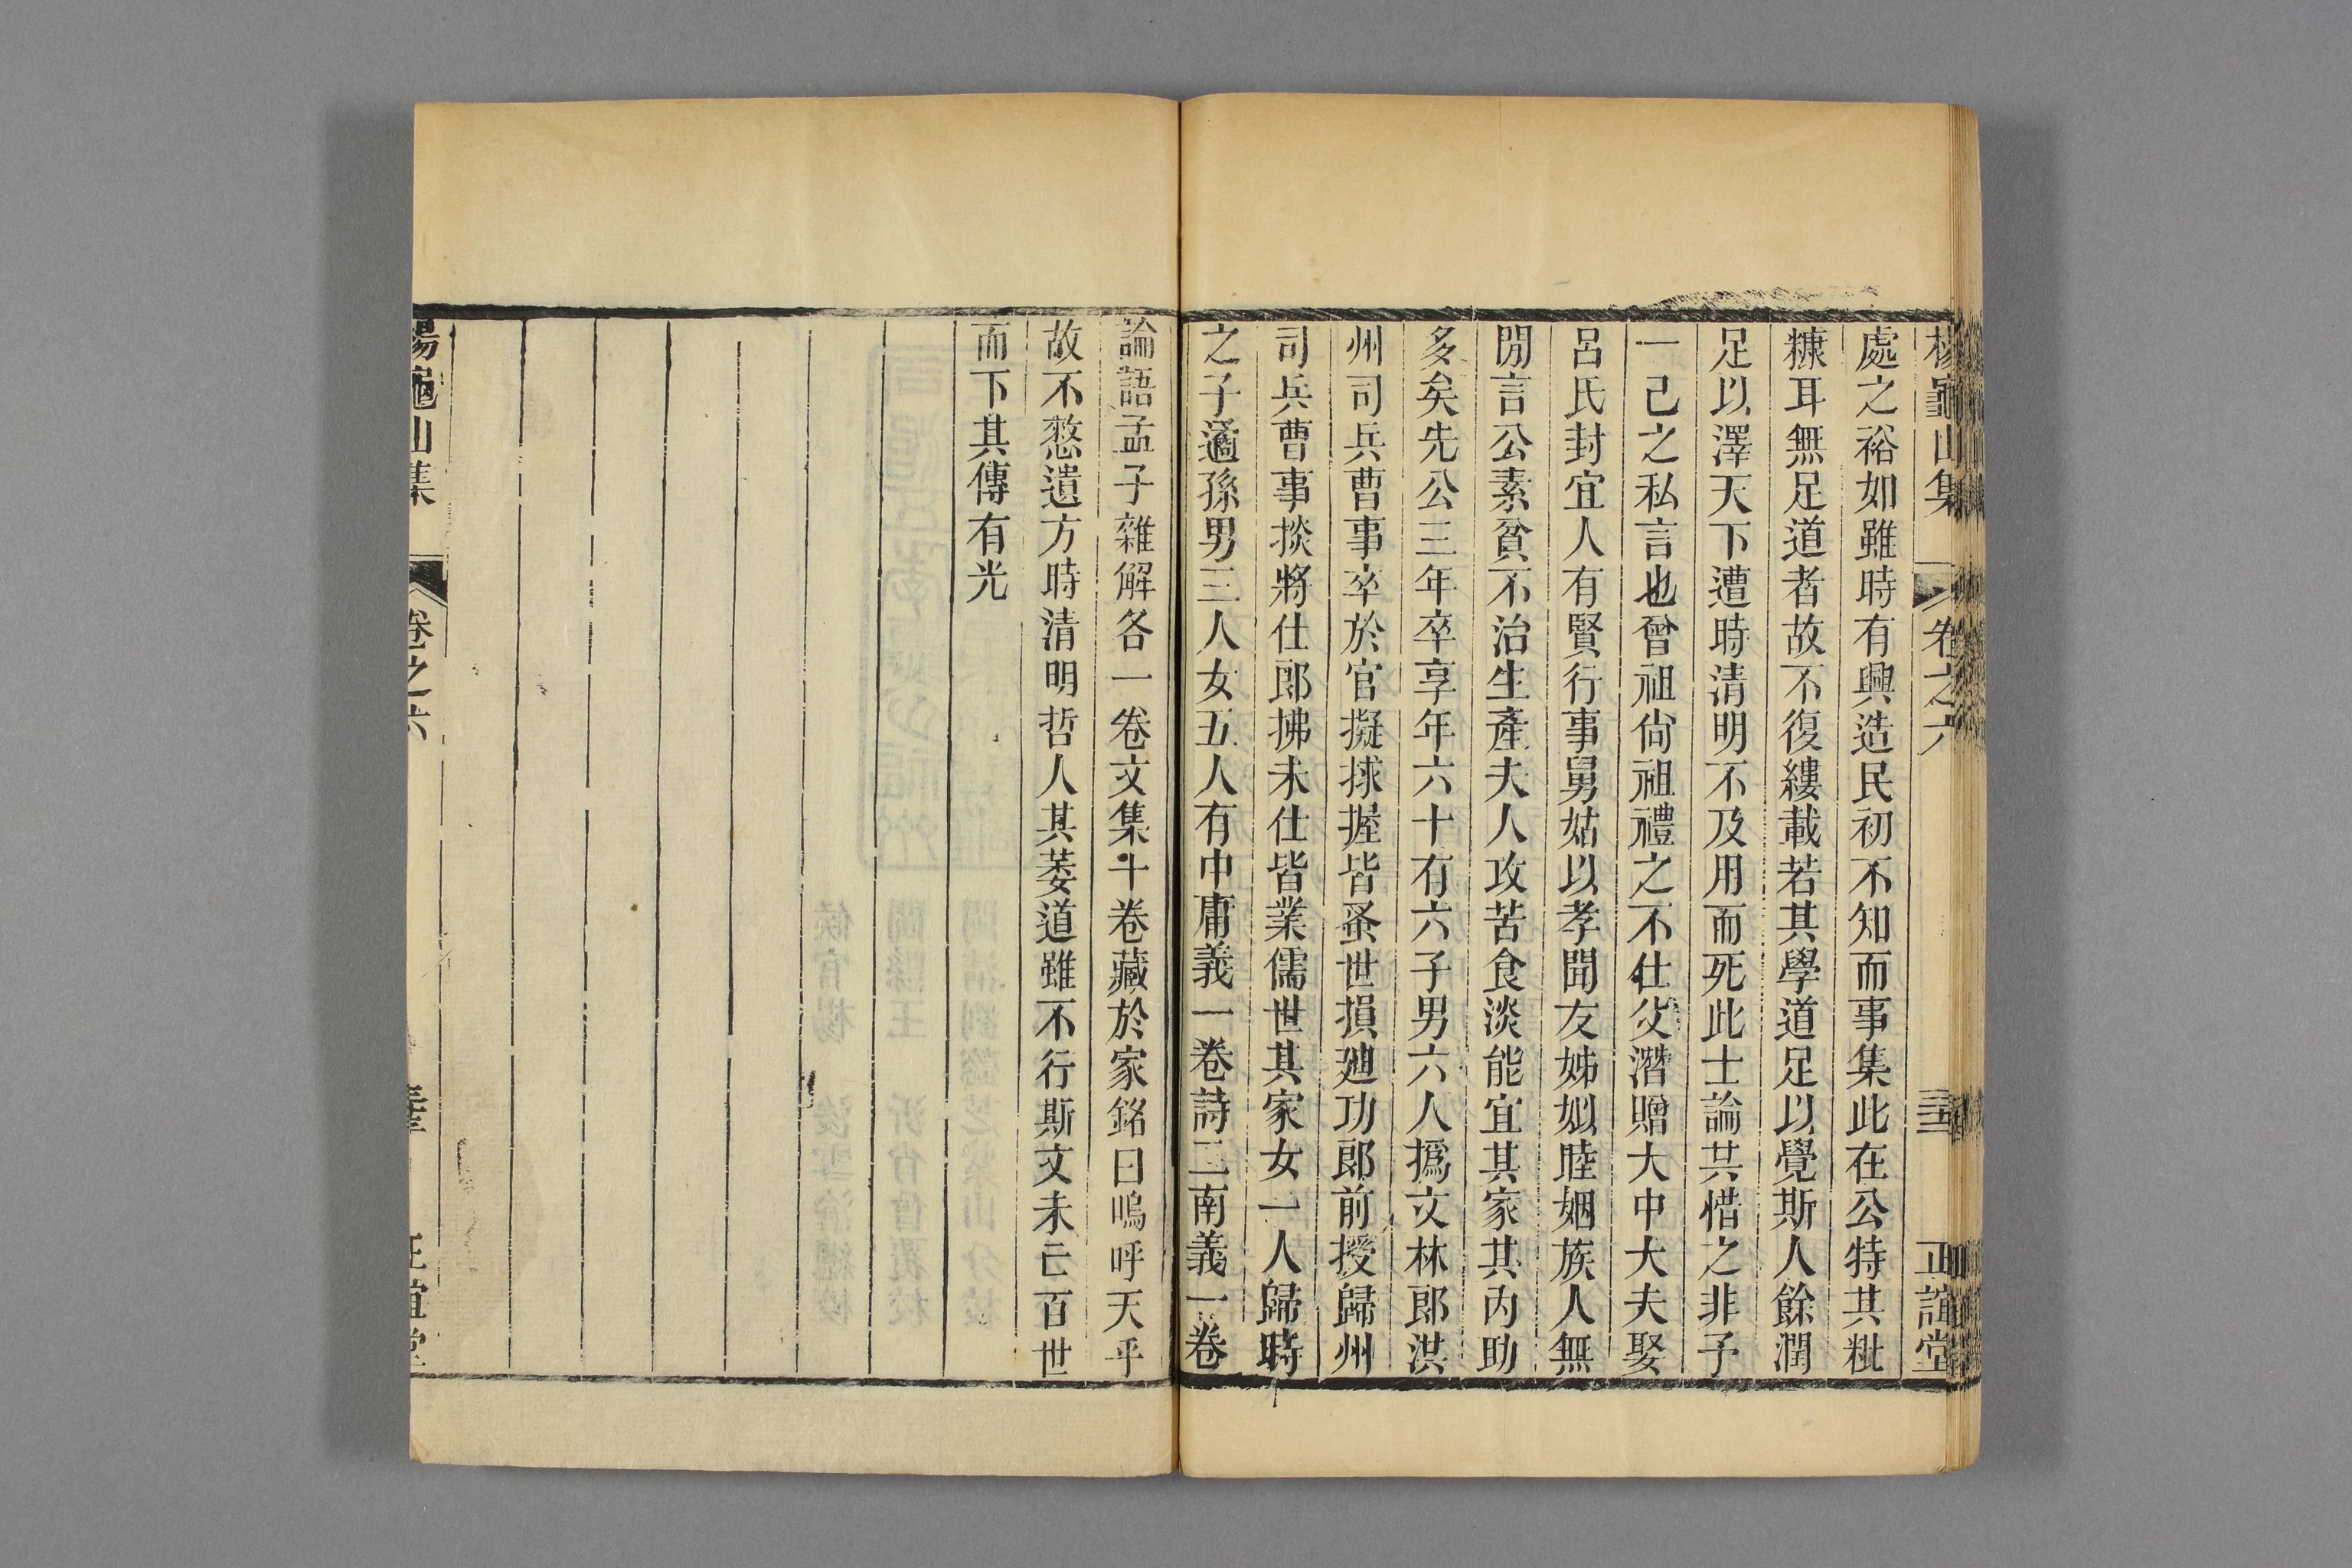 楊龜山集 卷之六 正誼堂
處之裕如雖時有興造民初不知而事集此在公特其粃
糠耳無足道者故不復縷載若其學道足以覺斯人餘潤
足以澤天下遭時清明不及用而死此士論共惜之非予
一己之私言也曾祖尙祖禮之不仕父潛贈大中大夫娶
呂氏封宜人有賢行事舅姑以孝聞友娣姒睦姻族人無
閒言公素貧不治生產夫人攻苦食淡能宜其家其內助
多矣先公三年卒享年六十有六子男六人撝文林郎洪
州司兵曹事卒於官擬捄握皆蚤世損廸功郎前授歸州
司兵曹事掞將仕郎拂未仕皆業儒世其家女一人歸時
之子適孫男三人女五人有中庸義一卷詩二南義一卷
論語孟子雜解各一卷文集十卷藏於家銘曰嗚呼天乎
故不憖遺方時清明哲人其萎道雖不行斯文未亡百世
而下其傳有光
楊龜山集 卷之六 正誼堂